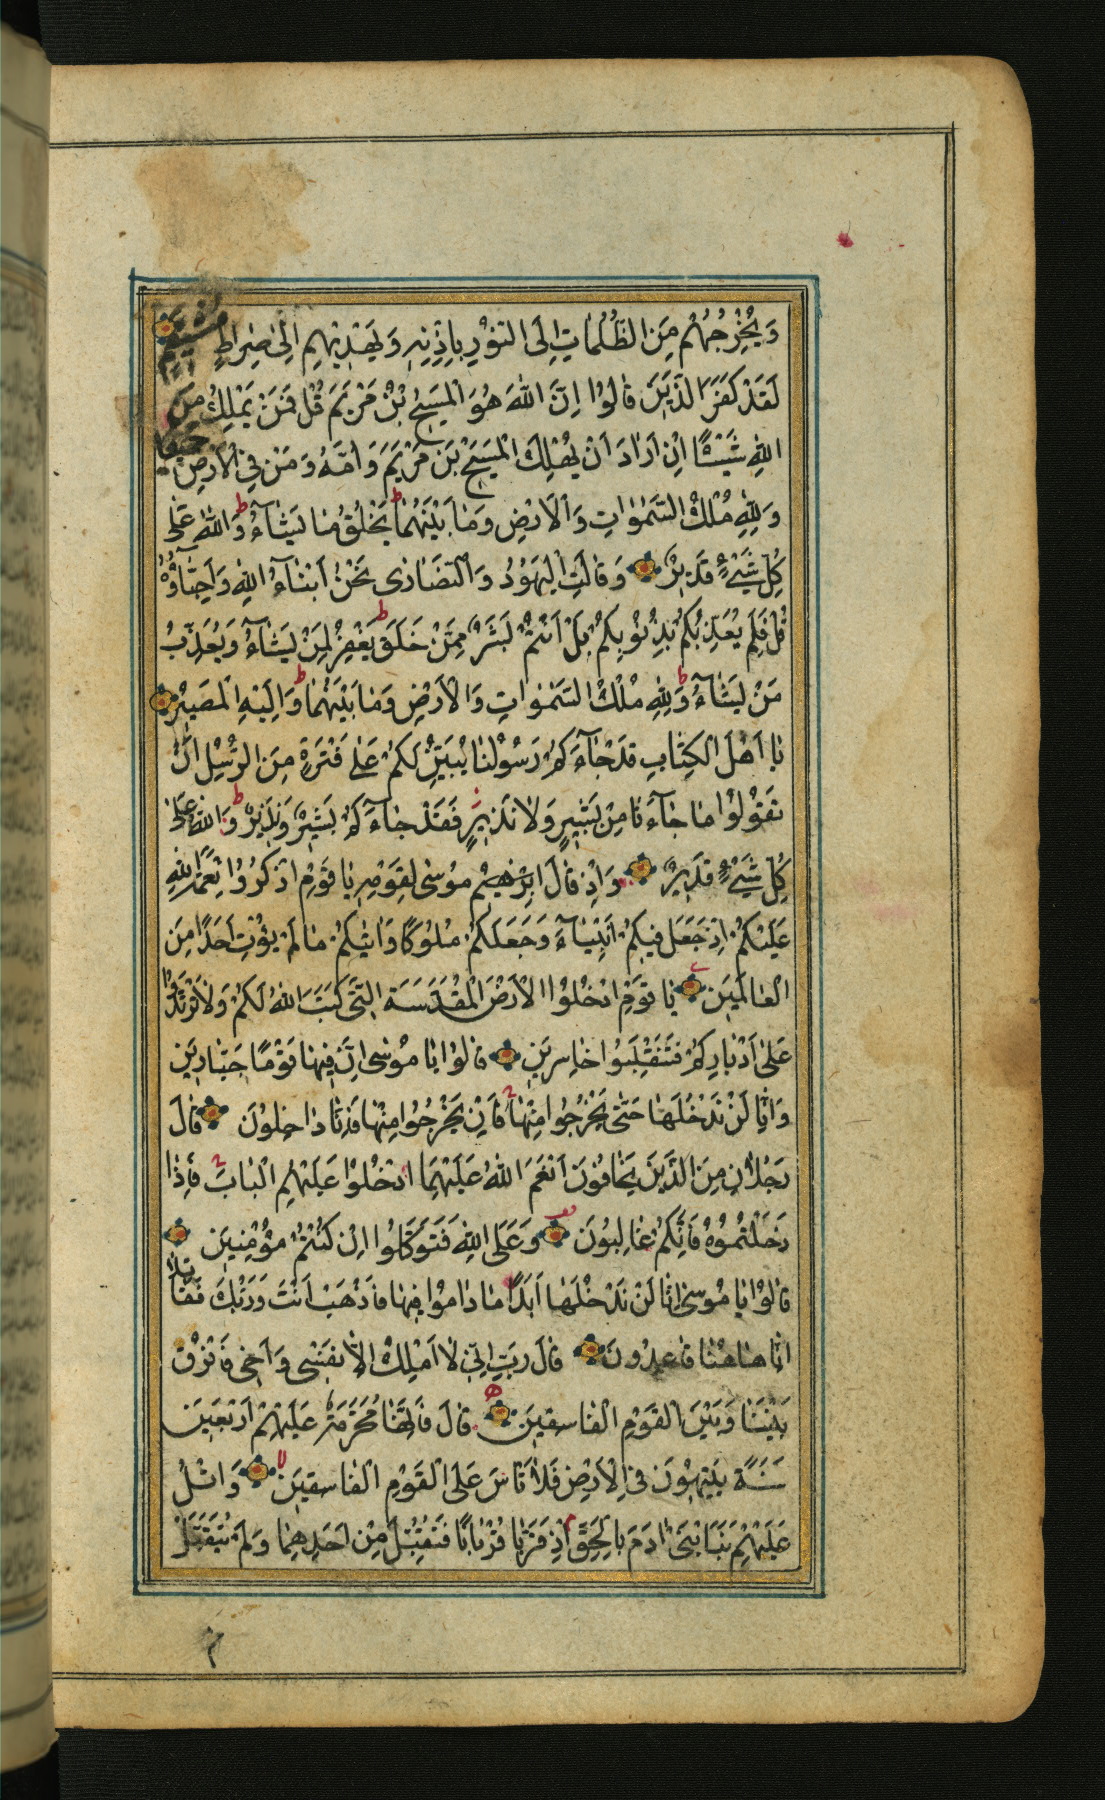 وَيُخْرِجُهُمْ مِنَ الظُّلُمَاتِ اِلَى النُّوْرِ بِاِذْنِهِ وَيَهْدِيْهِمْ اِلَى صِرَاطٍ مُسْتَقِيْمٍ
لَقَدْ كَفَرَ الَّذِيْنَ قَالُوْا اِنَّ اللّٰهَ هُوَ الْمَسِيْحُ بْنُ مَرْيَمَ قُلْ فَمَنْ يَمْلِكُ مِنَ
اللّٰهِ شَيْئًا اِنْ اَرَادَ اَنْ يُهْلِكَ الْمَسِيْحَ بْنَ مَرْيَمَ وَاُمَّهُ وَمَنْ فِي الْاَرْضِ جَمِيْعًا
وَلِلّٰهِ مُلْكُ السَّمٰوَاتِ وَالْاَرْضِ وَمَا بَيْنَهُمَا ط يَخْلُقُ مَا يَشَآءُ ط وَاللّٰهُ عَلٰى
كُلِّ شَيْءٍ قَدِيْرٌ وَقَالَتِ الْيَهُوْدُ وَالنَّصَارٰى نَحْنُ اَبْنَاءُ اللّٰهِ وَاَحِبَّاؤُهُ
قُلْ فَلِمَ يُعَذِّبُكُمْ بِذُنُوْبِكُمْ بَلْ اَنْتُمْ بَشَرٌ مِمَّنْ خَلَقَ ط يَغْفِرُ لِمَنْ يَشَآءُ وَيُعَذِّبُ
مَنْ يَشَآءُ ط وَلِلّٰهِ مُلْكُ السَّمٰوَاتِ وَالْاَرْضِ وَمَا بَيْنَهُمَا ط وَاِلَيْهِ الْمَصِيْرُ
يَا اَهْلَ الْكِتَابِ قَدْ جَآءَكُمْ رَسُوْلُنَا يُبَيِّنُ لَكُمْ عَلٰى فَتْرَةٍ مِنَ الرُّسُلِ اَنْ
تَقُوْلُوْا مَا جَآءَنَا مِنْ بَشِيْرٍ وَلَا نَذِيْرٍ فَقَدْ جَآءَكُمْ بَشِيْرٌ وَنَذِيْرٌ ط وَاللّٰهُ عَلٰى
كُلِّ شَيْءٍ قَدِيْرٌ وَاِذْ قَالَ اِبْرٰهِيْمُ مُوْسٰى لِقَوْمِهِ يَا قَوْمِ اذْكُرُوْا نِعْمَةَ اللّٰهِ
عَلَيْكُمْ اِذْ جَعَلَ فِيْكُمْ اَنْبِيَآءَ وَجَعَلَكُمْ مُلُوْكًا وَاٰتٰيكُمْ مَا لَمْ يُؤْتِ اَحَدًا مِنَ
الْعَالَمِيْنَ يَا قَوْمِ ادْخُلُوْا الْاَرْضَ الْمُقَدَّسَةَ الَّتِيْ كَتَبَ اللّٰهُ لَكُمْ وَلَا تَرْتَدُّوْا
عَلٰى اَدْبَارِكُمْ فَتَنْقَلِبُوْا خَاسِرِيْنَ قَالُوْا يَا مُوْسٰى اِنَّ فِيْهَا قَوْمًا جَبَّارِيْنَ
وَاِنَّا لَنْ نَدْخُلَهَا حَتّٰى يَخْرُجُوْا مِنْهَا فَاِنْ يَخْرُجُوْا مِنْهَا فَاِنَّا دَاخِلُوْنَ قَالَ
رَجُلَانِ مِنَ الَّذِيْنَ يَخَافُوْنَ اَنْعَمَ اللّٰهُ عَلَيْهِمَا ادْخُلُوْا عَلَيْهِمُ الْبَابَ فَاِذَا
دَخَلْتُمُوْهُ فَاِنَّكُمْ غَالِبُوْنَ وَعَلَى اللّٰهِ فَتَوَكَّلُوْا اِنْ كُنْتُمْ مُؤْمِنِيْنَ
قَالُوْا يَا مُوْسٰى اِنَّا لَنْ نَدْخُلَهَا اَبَدًا مَا دَامُوْا فِيْهَا فَاذْهَبْ اَنْتَ وَرَبُّكَ فَقَاتِلَا
اِنَّا هَاهُنَا قَاعِدُوْنَ قَالَ رَبِّ اِنِّيْ لَا اَمْلِكُ اِلَّا نَفْسِيْ وَاَخِيْ فَافْرُقْ
بَيْنَنَا وَبَيْنَ الْقَوْمِ الْفَاسِقِيْنَ قَالَ فَاِنَّهَا مُحَرَّمَةٌ عَلَيْهِمْ اَرْبَعِيْنَ
سَنَةً يَتِيْهُوْنَ فِي الْاَرْضِ فَلَا تَاْسَ عَلَى الْقَوْمِ الْفَاسِقِيْنَ وَاتْلُ
عَلَيْهِمْ نَبَاَ ابْنَيْ اٰدَمَ بِالْحَقِّ م اِذْ قَرَّبَا قُرْبَانًا فَتُقُبِّلَ مِنْ اَحَدِهِمَا وَلَمْ يُتَقَبَّلْ